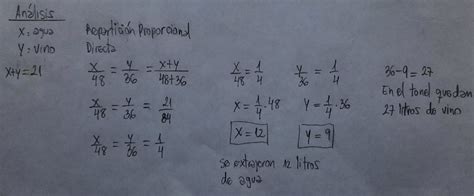 Análisis
X = agua
Y = vino
x+y = 21
Repartición Proporcional
Directa
x/48 = y/36 = x+y/48+36
x/48 = y/36 = 21/84
x/48 = y/36 = 1/4
x/48 = 1/4
x = 1/4 · 48
x = 12
y/36 = 1/4
y = 1/4 · 36
y = 9
se extrajeron 12 litros
de agua
36-9 = 27
En el tonel quedan
27 litros de vino